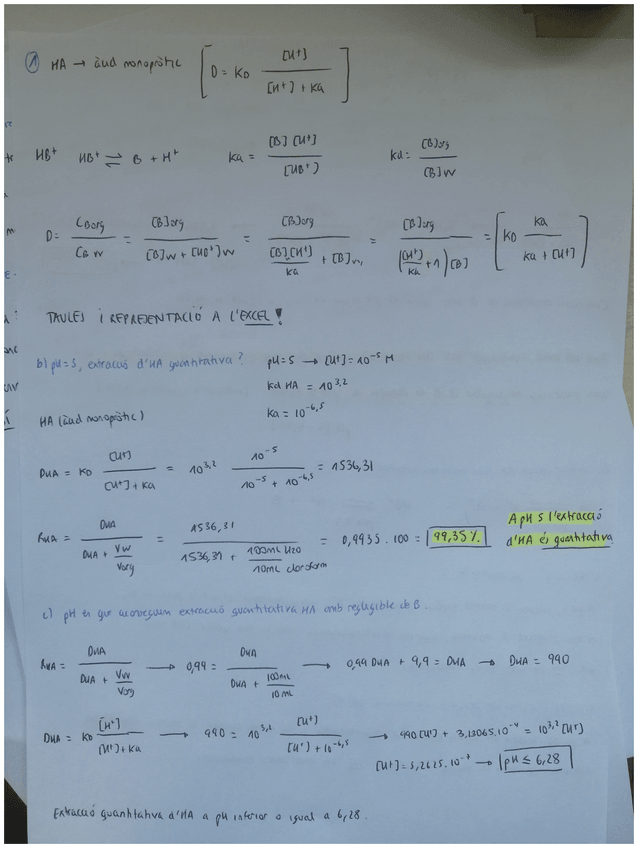 1 HA → àcid monopròtic [ D = KD [H+] / ([H+] + Ka) ]
HB+ HB+ ⇌ B + H+ Ka = [B] [H+] / [HB+] Kd = [B]org / [B]w
D = CB org / CB w = [B]org / ([B]w + [HB+]w) = [B]org / ([B].[H+] / Ka + [B]w) = [B]org / (([H+] / Ka + 1) [B]) = [ KD Ka / (Ka + [H+]) ]
TAULES i REPRESENTACIÓ A L'EXCEL!
b) pH=5, extracció d'HA quantitativa? pH=5 → [H+] = 10^-5 M
Kd HA = 10^3,2
HA (àcid monopròtic) Ka = 10^-6,5
DHA = KD [H+] / ([H+] + Ka) = 10^3,2 10^-5 / (10^-5 + 10^-6,5) = 1536,31
RHA = DHA / (DHA + Vw / Vorg) = 1536,31 / (1536,31 + 100mL H2O / 10mL cloroform) = 0,9935 . 100 = 99,35% A pH 5 l'extracció
d'HA és quantitativa
c) pH en que aconseguim extracció quantitativa HA amb negligible de B.
RHA = DHA / (DHA + Vw / Vorg) → 0,99 = DHA / (DHA + 100mL / 10mL) → 0,99 DHA + 9,9 = DHA → DHA = 990
DHA = KD [H+] / ([H+] + Ka) → 990 = 10^3,2 [H+] / ([H+] + 10^-6,5) → 990 [H+] + 3,13065.10^-4 = 10^3,2 [H+]
[H+] = 5,2625.10^-7 → pH ≤ 6,28
Extracció quantitativa d'HA a pH inferior o igual a 6,28.